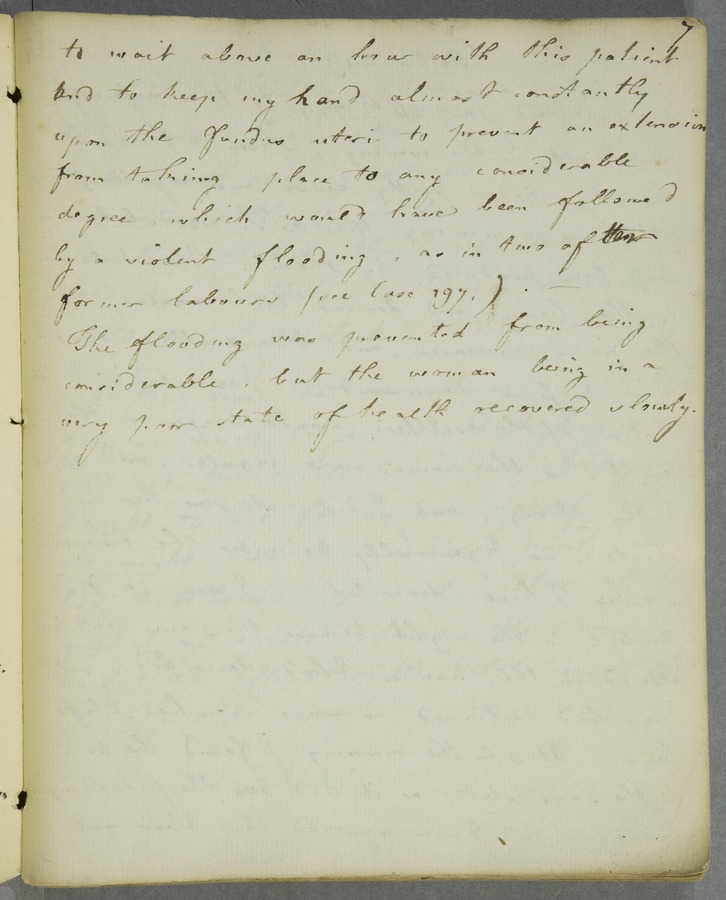 7
to wait above an hour with this patient
and to keep my hand almost constantly
upon the fundus uteri to prevent an extension
from taking place to any considerable
degree which would have been followed
by a violent flooding, as in two of
former labours (see Case 197.). —
The flooding was prevented from being
considerable, but the woman being in a
very poor state of health recovered slowly.